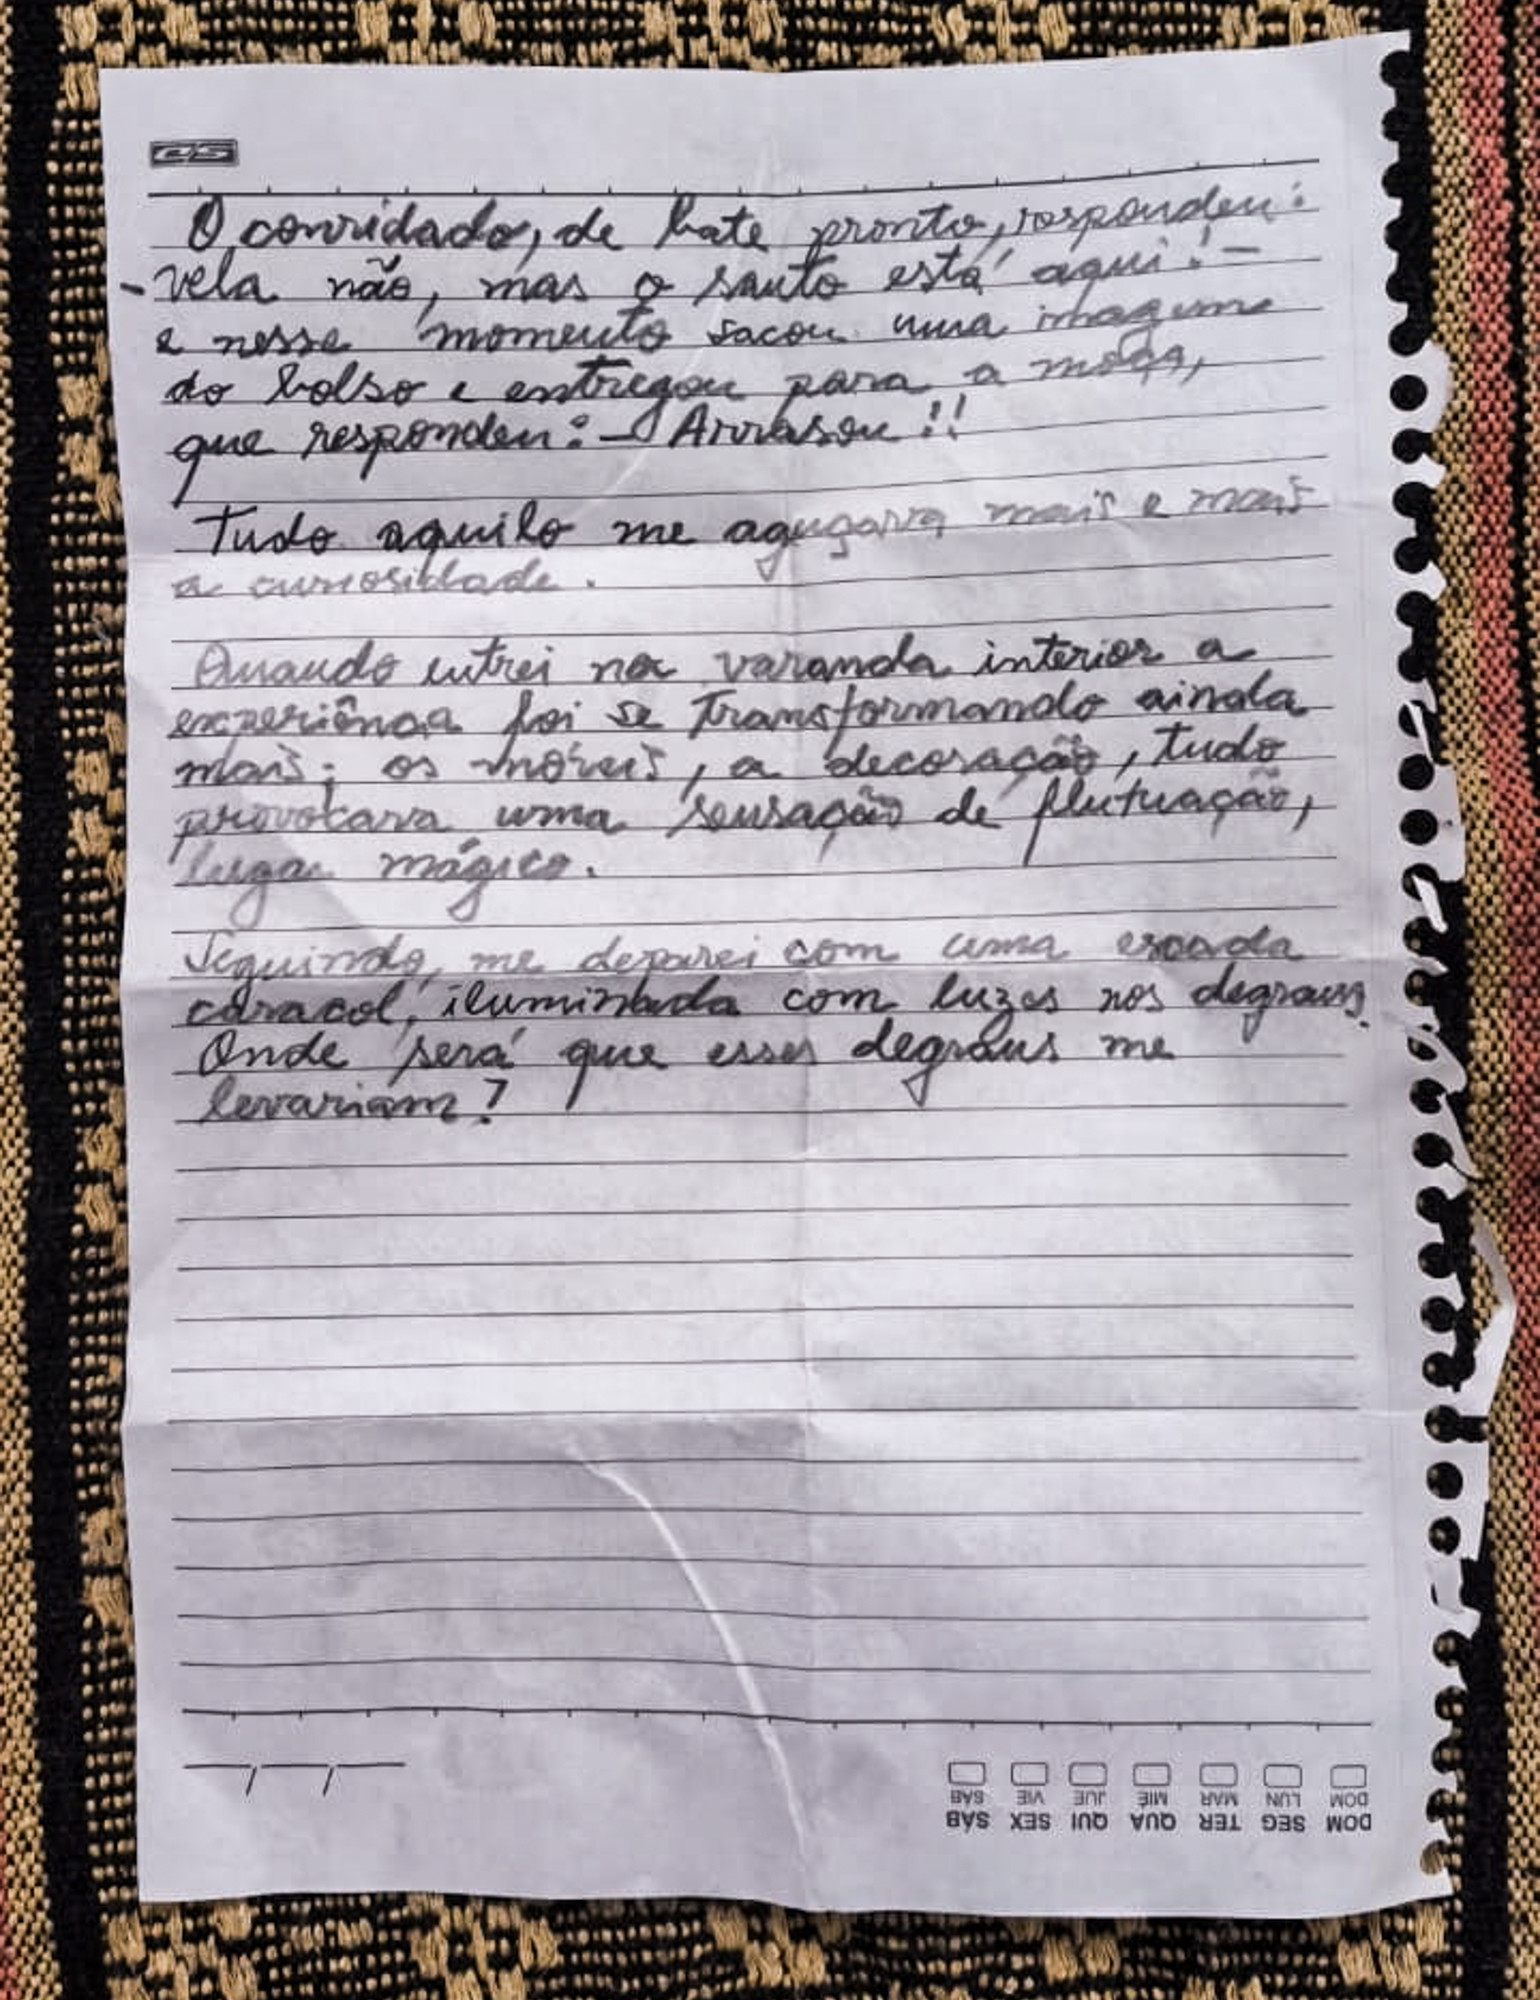 O convidado, de bate pronto, respondeu:
- vela não, mas o santo está aqui! -
e nesse momento sacou uma imagem
do bolso e entregou para a moça,
que respondeu: - Arrasou!!
Tudo aquilo me aguçava mais e mais
a curiosidade.
Quando entrei na varanda interior a
experiência foi se transformando ainda
mais; os móveis, a decoração, tudo
provocava uma sensação de flutuação,
lugar mágico.
Seguindo, me deparei com uma escada
caracol, iluminada com luzes nos degraus.
Onde será que esses degraus me
levariam?
SÁB VIE JUE MIÉ MAR LUN DOM
SÁB SEX QUI QUA TER SEG DOM